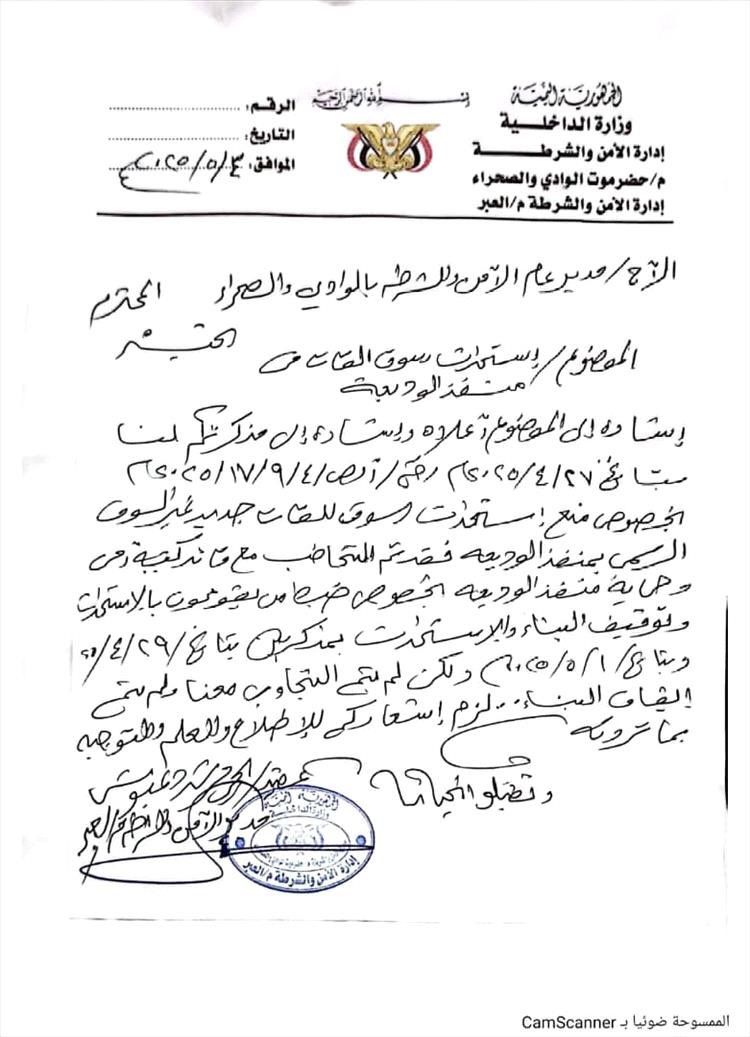 الجمهورية اليمنية
وزارة الداخلية
إدارة الأمن والشرطة
م/حضرموت الوادي والصحراء
إدارة الأمن والشرطة م/العبر
بسم الله الرحمن الرحيم
الرقم:
التاريخ:
الموافق: ٢٠٢٥/٥/٣
الأخ/ مدير عام الأمن والشرطة بالوادي والصحراء المحترم
الموضوع/ إستحداث سوق القات في
منفذ الوديعة
إشارة إلى الموضوع أعلاه وإشارة إلى مذكرتكم لنا
بتاريخ ٢٠٢٥/٤/٢٧م رقم/أ ص/١٧/٩/٤/٢٠٢٥م
بخصوص منع إستحداث سوق للقات جديد غير السوق
الرسمي بمنفذ الوديعه فقد تم التخاطب مع قائد كتيبة أمن
وحماية منفذ الوديعه بخصوص ضبط من يقومون بالاستحداث
وتوقيف البناء والاستحداث بمذكرتين بتاريخ ٤/٢٩/
وبتاريخ ٢٠٢٥/٥/١م ولكن لم يتم التجاوب معنا ولم يتم
إيقاف البناء.. لزم إشعاركم للإطلاع والعلم والتوجيه
بما ترونه
وتقبلوا تحياتنا
عقيد/
مدير الأمن والشرطة م/العبر
الجمهورية اليمنية
وزارة الداخلية
إدارة الأمن والشرطة م/العبر
الممسوحة ضوئيا بـ CamScanner